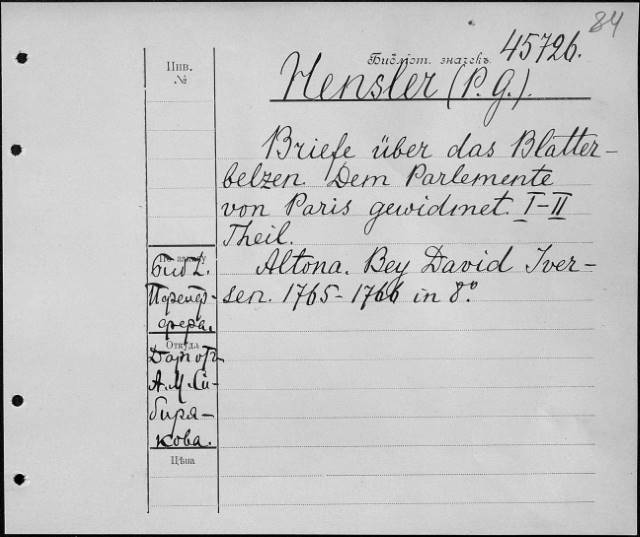 84
45726.
Библіот. значекъ
Hensler (P. G.).
Инв.
№
Briefe über das Blatter-
belzen. Dem Parlemente
von Paris gewidmet. I-II
Theil.
Altona. Bey David Iver-
sen. 1765-1766 in 8°.
Библ.
Перетр-
Откуда
Даръ отъ
А. М. Си-
биря-
кова.
Цѣна